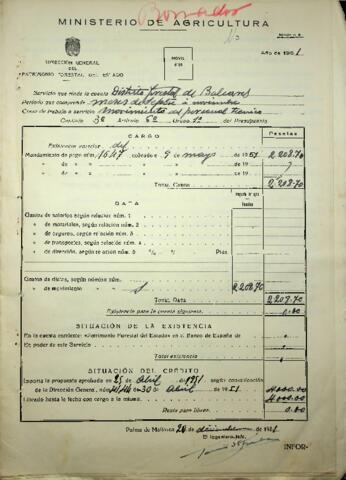 Borrador
MINISTERIO DE AGRICULTURA
Año de 1951
DIRECCIÓN GENERAL
DEL
PATRIMONIO FORESTAL DEL ESTADO
MÓVIL
Servicio que rinde la cuenta Distrito Forestal de Baleares
Período que comprende meses de Sepbre a noviembre
Clase de trabajo o servicio movimientos del personal técnico
Capítulo 3º Artículo 6º Grupo 1º del Presupuesto
CARGO
Pesetas
Existencia anterior
Mandamiento de pago núm. 1647 cobrado e 9 mayo 1951
2.208.70
" " " " " de 19
" " " " " de 19
TOTAL CARGO
2.208.70
DATA
Pesetas
Gastos de salarios según relación núm. 1
" de materiales, según relación núm. 2
" de seguros, según relación núm. 3
" de transportes, según relación núm. 4
" de dirección, según relación núm. 5 % s/ Ptas.
Gastos de dietas, según relación núm.
" de movimiento 1
2.208.70
TOTAL DATA
2.208.70
Existencia para la cuenta siguiente
0.00
SITUACIÓN DE LA EXISTENCIA
En la cuenta corriente «Patrimonio Forestal del Estado» en el Banco de España de
En poder de este Servicio
Total existencia
SITUACIÓN DEL CRÉDITO
Importa la propuesta aprobada en 25 de Abril de 1951 según comunicación
de la Dirección General, núm. de 30 de Abril de 1951
4000.00
Librado hasta la fecha con cargo a la misma
4000.00
Resta para librar
0.00
Palma de Mallorca 20 de diciembre de 1951
El Ingeniero Jefe,
INFOR-